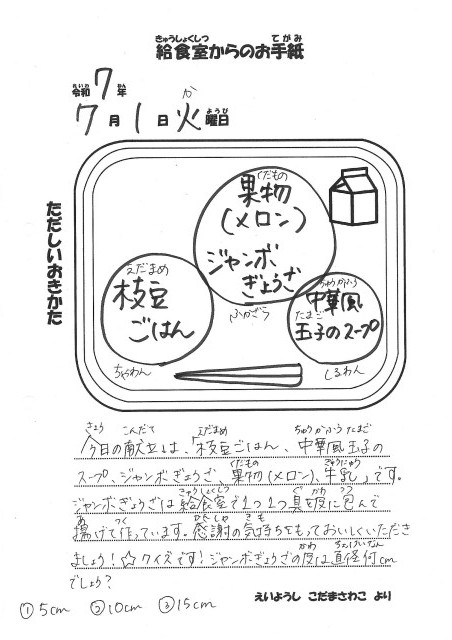 給食室からのお手紙
きゅうしょくしつ てがみ
令和7年
れいわ ねん
7月1日火曜日
か ようび
ただしいおきかた
果物
くだもの
(メロン)
ジャンボ
ぎょうざ
えだまめ
枝豆
ごはん
ちゅうかふう
中華風
たまご
玉子のスープ
ふかざら
ちゃわん
しるわん
きょう こんだて えだまめ ちゅうかふうたまご
今日の献立は、「枝豆ごはん、中華風玉子の
くだもの ぎゅうにゅう
スープ、ジャンボぎょうざ、果物(メロン)、牛乳」です。
きゅうしょくしつ ぐ かわ つつ
ジャンボぎょうざは給食室で1つ1つ具を皮に包んで
あ つく かんしゃ きも
揚げて作っています。感謝の気持ちをもっておいしくいただき
かわ ちょっけいなん
ましょう!☆クイズです!ジャンボぎょうざの皮は直径何cm
でしょう?
①5cm ②10cm ③15cm
えいようし こだまさわこ より